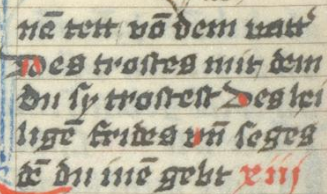 nē tett vō dem vatt̛
Des trostes mit dem
du sy trostest Des hei
ligē frides vn̄ seges
dē du inē gebt xiij